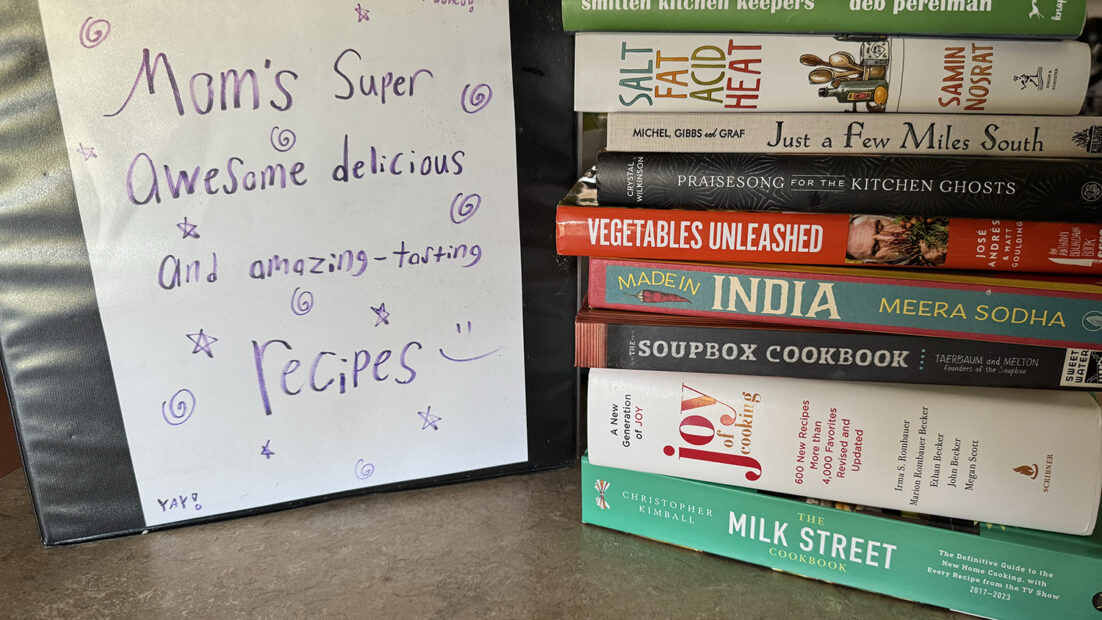 Mom's Super
awesome delicious
and amazing-tasting
recipes
YAY!
smitten kitchen keepers deb perelman
SALT
FAT
ACID
HEAT
SAMIN
NOSRAT
MICHEL, GIBBS and GRAF Just a Few Miles South
CRYSTAL
WILKINSON
PRAISESONG FOR THE KITCHEN GHOSTS
VEGETABLES UNLEASHED
JOSÉ
ANDRÉS
& MATT
GOULDING
MADE IN
INDIA
MEERA SODHA
THE SOUPBOX COOKBOOK
TAERBAUM and MELTON
Founders of the Soupbox
SWEET
WATER
A New
Generation
of JOY
joy
of
cooking
600 New Recipes
More than
4,000 Favorites
Revised and
Updated
Irma S. Rombauer
Marion Rombauer Becker
Ethan Becker
John Becker
Megan Scott
SCRIBNER
CHRISTOPHER
KIMBALL
THE
MILK STREET
COOKBOOK
The Definitive Guide to the
New Home Cooking, with
Every Recipe from the TV Show
2017–2023